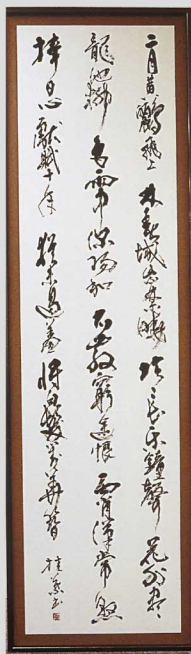 二月黃鸝飛上林春城紫禁曉陰々長樂鐘聲花外盡
龍池柳色雨中深陽和不散窮途恨霄漢常懸
捧日心獻賦十年猶未遇羞將白髮對華簪